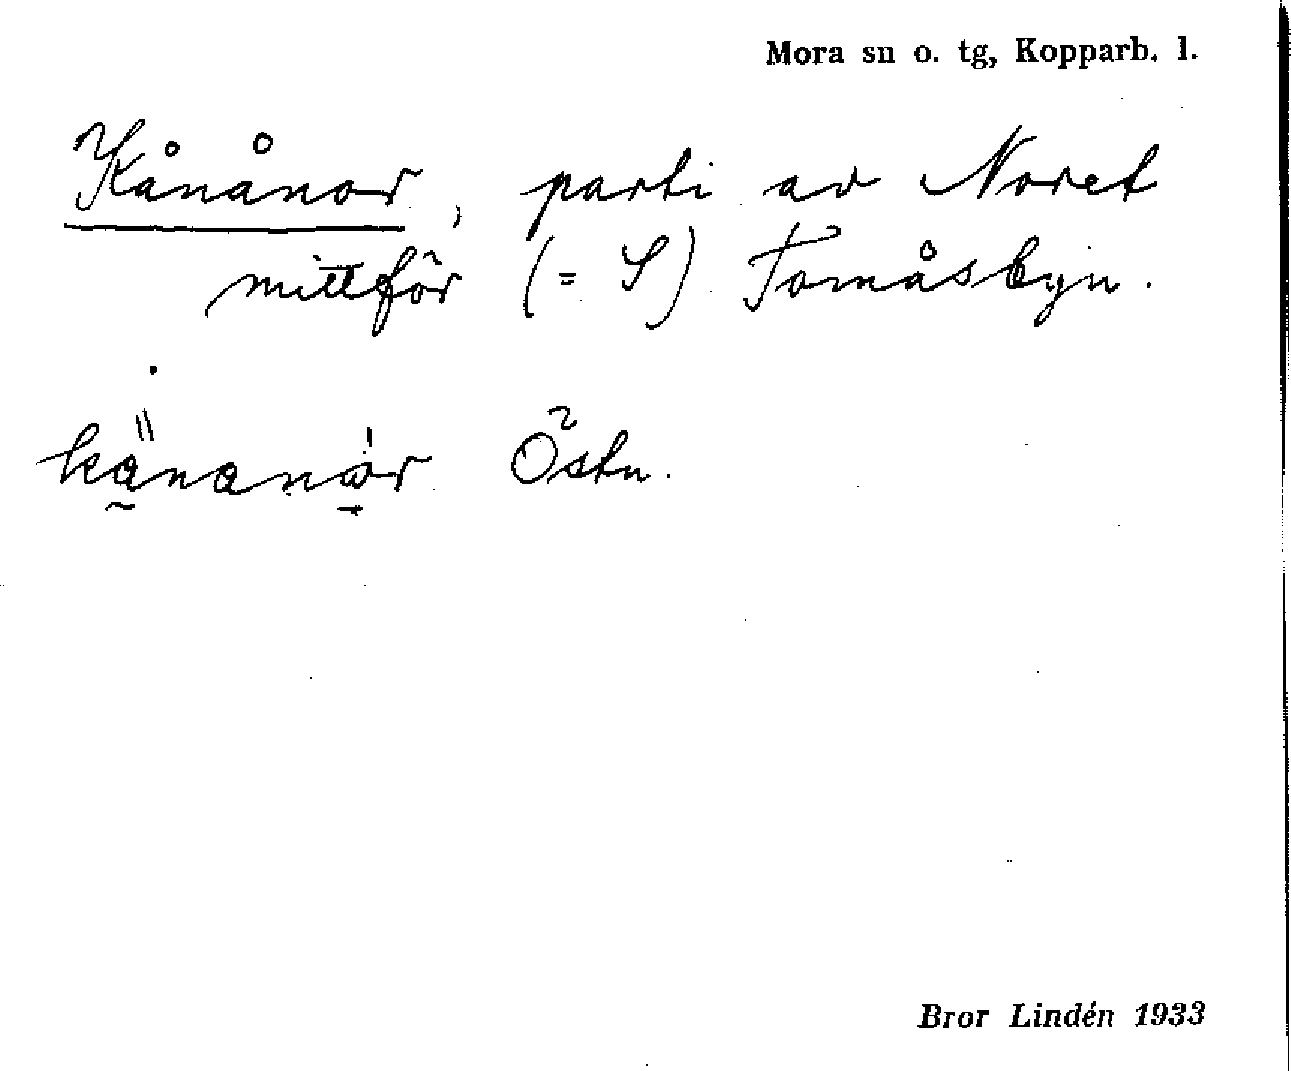 Mora sn o. tg, Kopparb. l.
Kånånor, parti av Noret
mittför (= S) Tomåsbyn.
känanår Östn.
Bror Lindén 1933